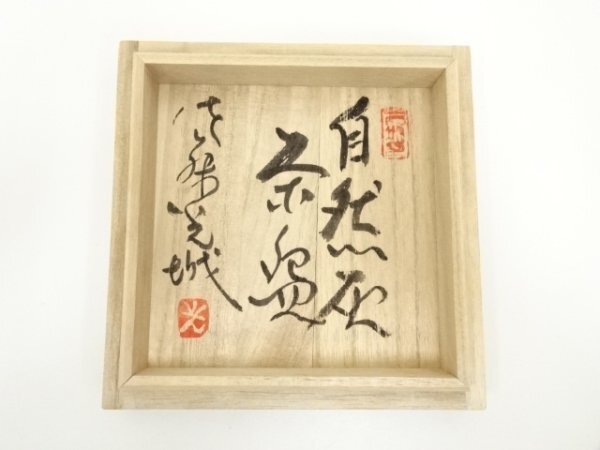 自然灰
茶盌
光城
光